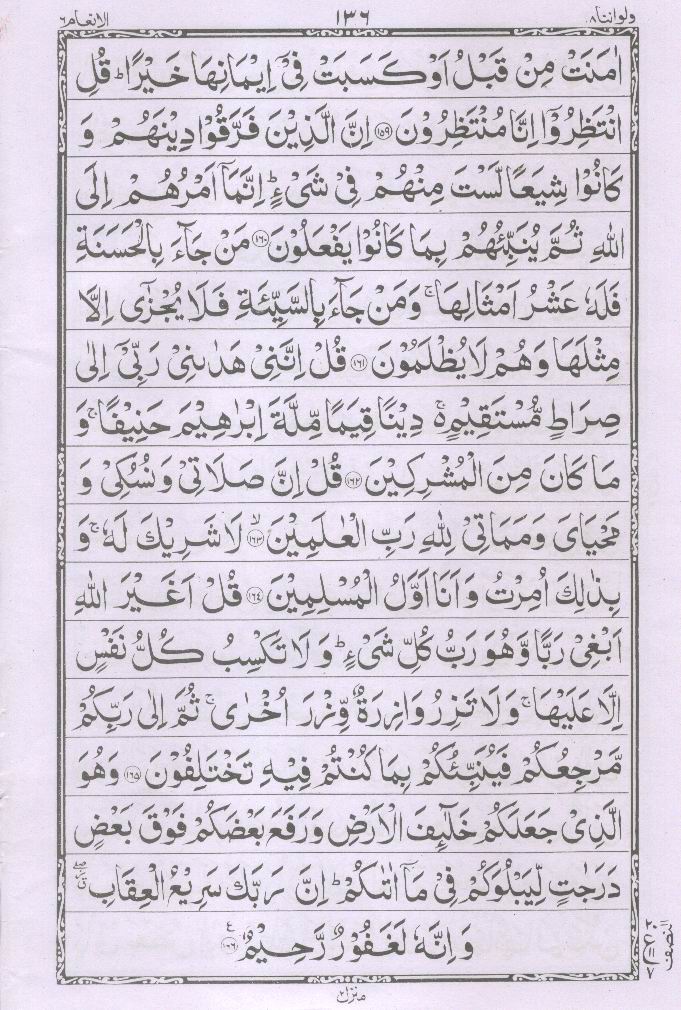 ولواننا ٨ ١٣٦ الانعام ٦
اٰمَنَتْ مِنْ قَبْلُ اَوْ كَسَبَتْ فِیْۤ اِیْمَانِهَا خَیْرًا ؕ قُلِ
انْتَظِرُوْۤا اِنَّا مُنْتَظِرُوْنَ ۝۱۵۹ اِنَّ الَّذِیْنَ فَرَّقُوْا دِیْنَهُمْ وَ
كَانُوْا شِیَعًا لَّسْتَ مِنْهُمْ فِیْ شَیْءٍ ؕ اِنَّمَاۤ اَمْرُهُمْ اِلَی
اللّٰهِ ثُمَّ یُنَبِّئُهُمْ بِمَا كَانُوْا یَفْعَلُوْنَ ۝۱۶۰ مَنْ جَآءَ بِالْحَسَنَةِ
فَلَهٗ عَشْرُ اَمْثَالِهَا ۚ وَمَنْ جَآءَ بِالسَّیِّئَةِ فَلَا یُجْزٰۤی اِلَّا
مِثْلَهَا وَهُمْ لَا یُظْلَمُوْنَ ۝۱۶۱ قُلْ اِنَّنِیْ هَدٰىنِیْ رَبِّیْۤ اِلٰی
صِرَاطٍ مُّسْتَقِیْمٍ ۚ۬ دِیْنًا قِیَمًا مِّلَّةَ اِبْرٰهِیْمَ حَنِیْفًا ۚ وَ
مَا كَانَ مِنَ الْمُشْرِكِیْنَ ۝۱۶۲ قُلْ اِنَّ صَلَاتِیْ وَنُسُكِیْ وَ
مَحْیَایَ وَمَمَاتِیْ لِلّٰهِ رَبِّ الْعٰلَمِیْنَ ۝۱۶۳ۙ لَا شَرِیْكَ لَهٗ ۚ وَ
بِذٰلِكَ اُمِرْتُ وَاَنَا اَوَّلُ الْمُسْلِمِیْنَ ۝۱۶۴ قُلْ اَغَیْرَ اللّٰهِ
اَبْغِیْ رَبًّا وَّهُوَ رَبُّ كُلِّ شَیْءٍ ؕ وَلَا تَكْسِبُ كُلُّ نَفْسٍ
اِلَّا عَلَیْهَا ۚ وَلَا تَزِرُ وَازِرَةٌ وِّزْرَ اُخْرٰی ۚ ثُمَّ اِلٰی رَبِّكُمْ
مَّرْجِعُكُمْ فَیُنَبِّئُكُمْ بِمَا كُنْتُمْ فِیْهِ تَخْتَلِفُوْنَ ۝۱۶۵ وَهُوَ
الَّذِیْ جَعَلَكُمْ خَلٰٓئِفَ الْاَرْضِ وَرَفَعَ بَعْضَكُمْ فَوْقَ بَعْضٍ
دَرَجٰتٍ لِّیَبْلُوَكُمْ فِیْ مَاۤ اٰتٰىكُمْ ؕ اِنَّ رَبَّكَ سَرِیْعُ الْعِقَابِ
وَاِنَّهٗ لَغَفُوْرٌ رَّحِیْمٌ ۝۱۶۶
النصف
ع
منزل ٢